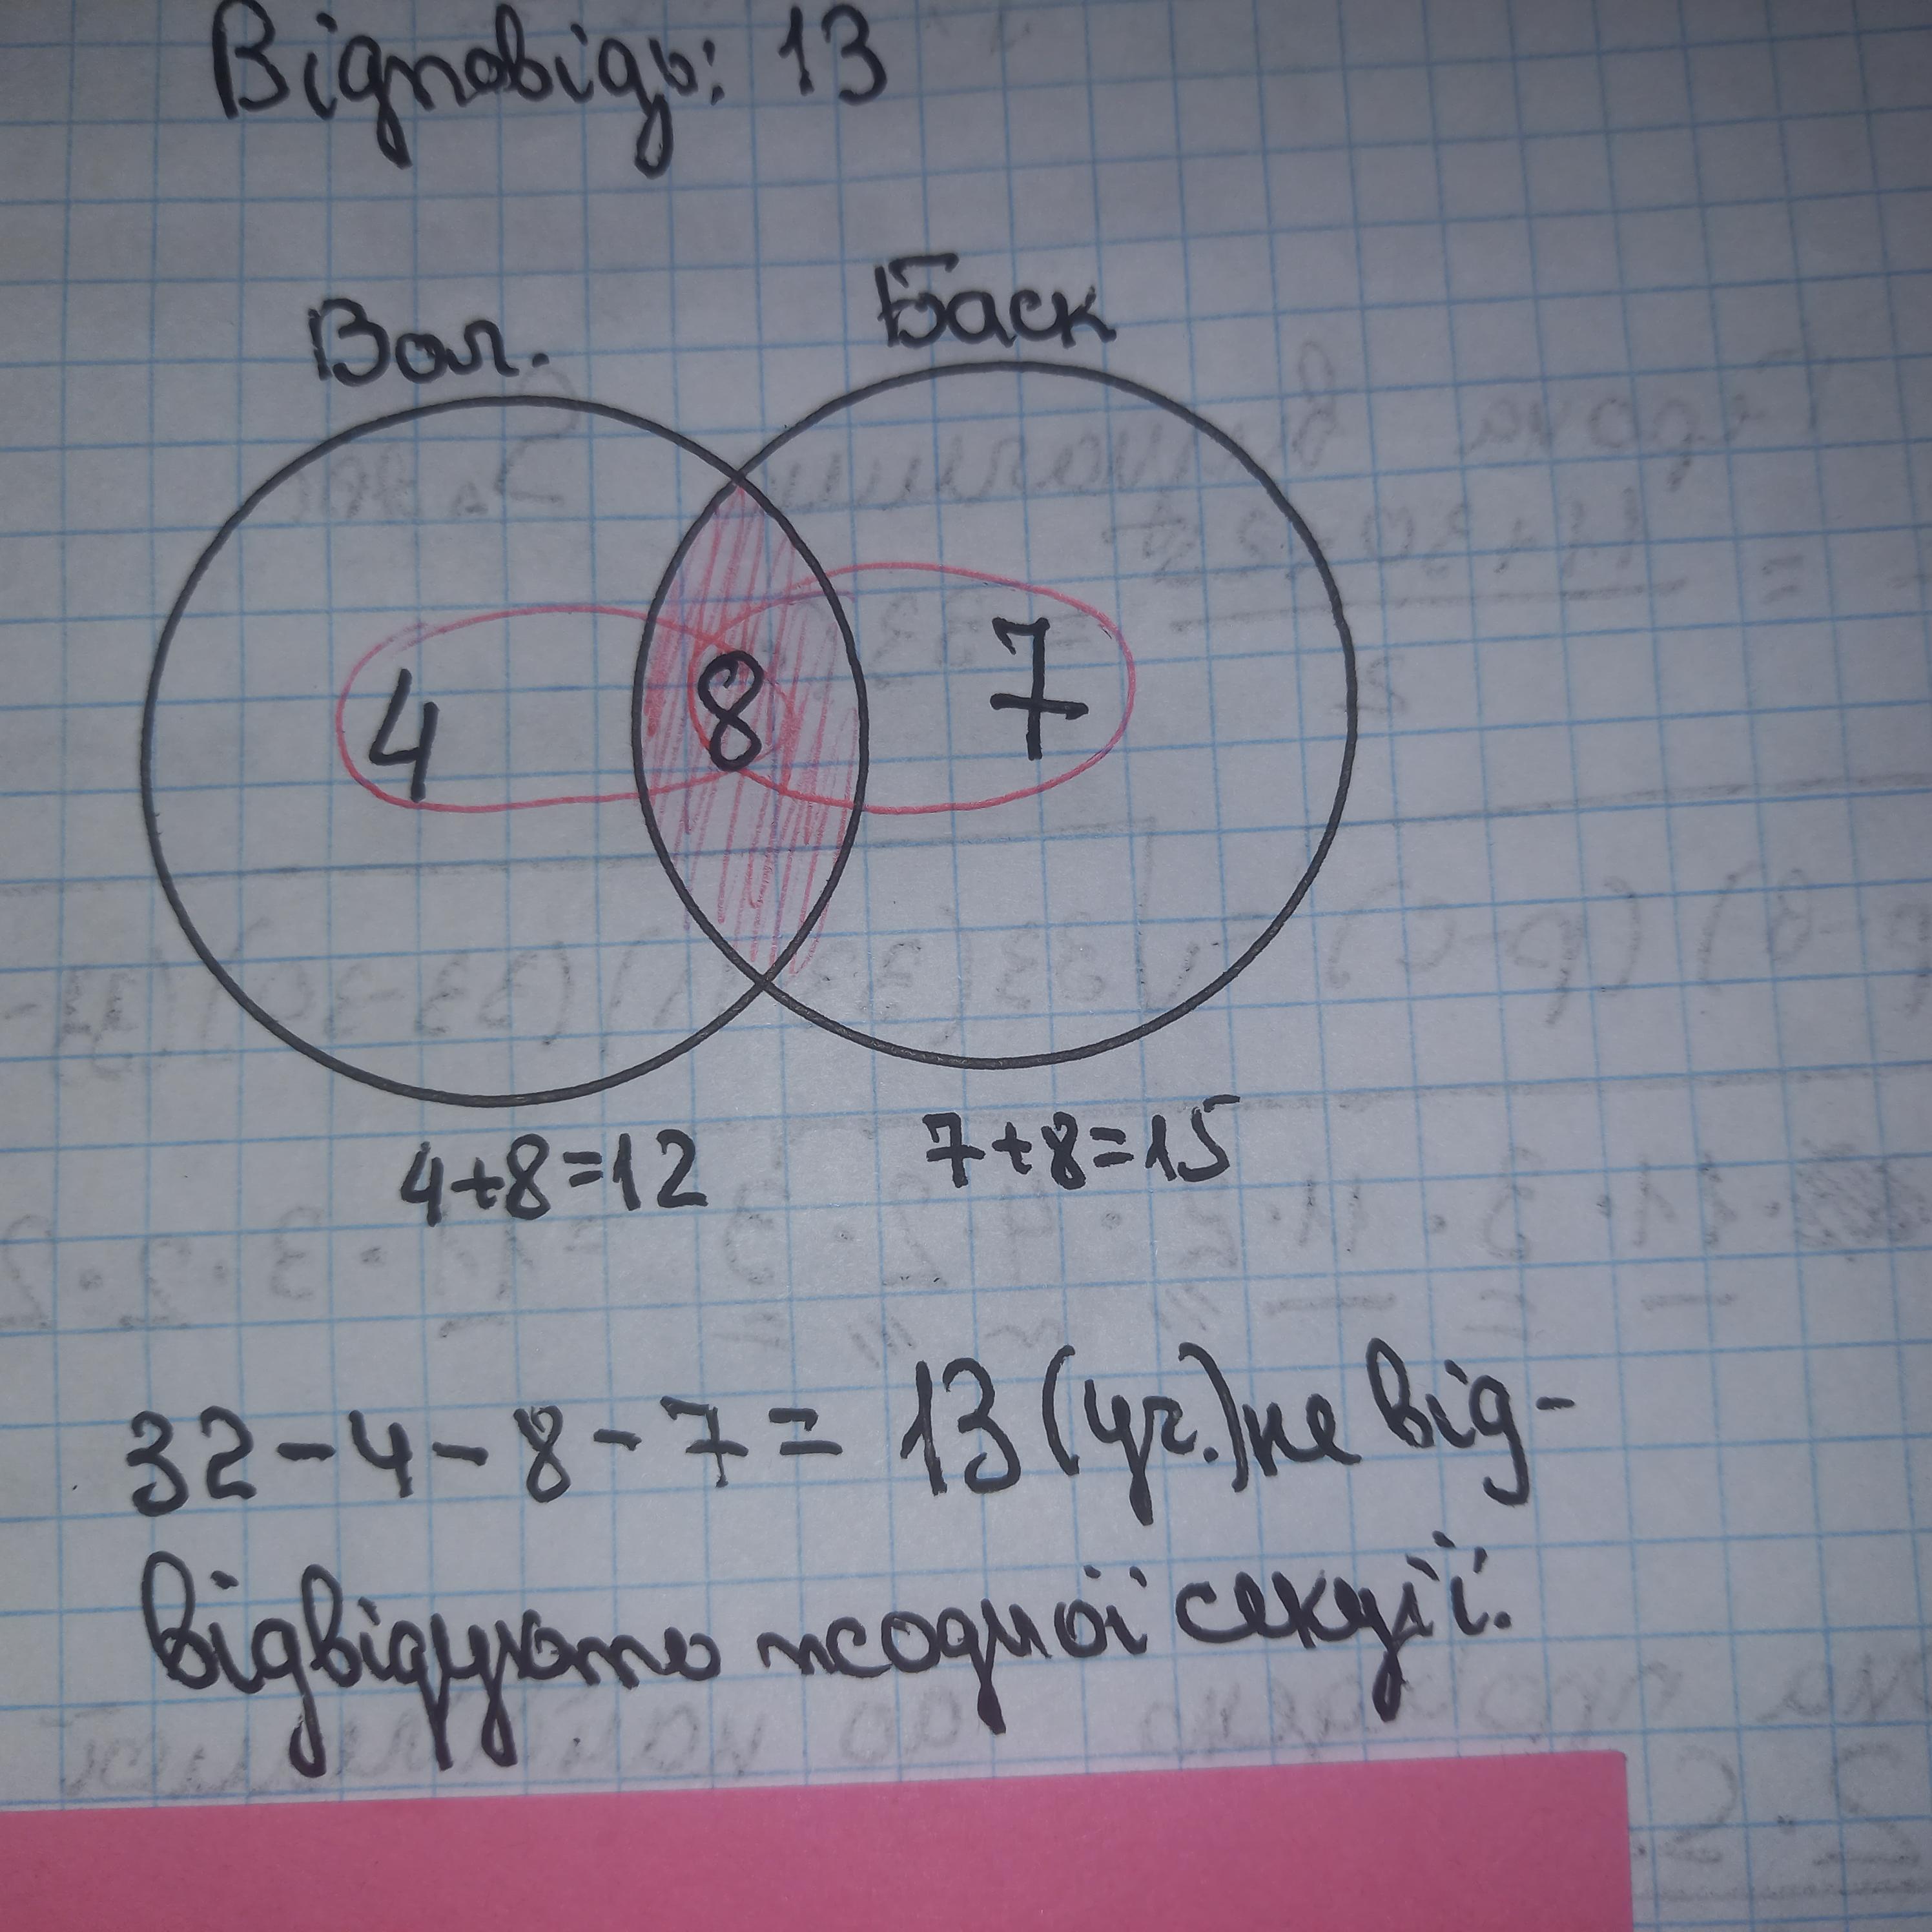 Відповідь: 13
Вол.
Баск
4
8
7
4+8=12
7+8=15
32-4-8-7= 13 (уч.) не від-
відвідують жодної секції.